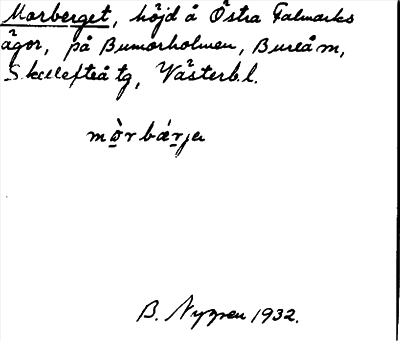 Morberget, höjd å Östra Falmarks
ägor, på Bumorholmen, Bureå m,
Skellefteå tg, Västerb l.
mȯ̱̀r bǽr̠ja
B. Nygren 1932.